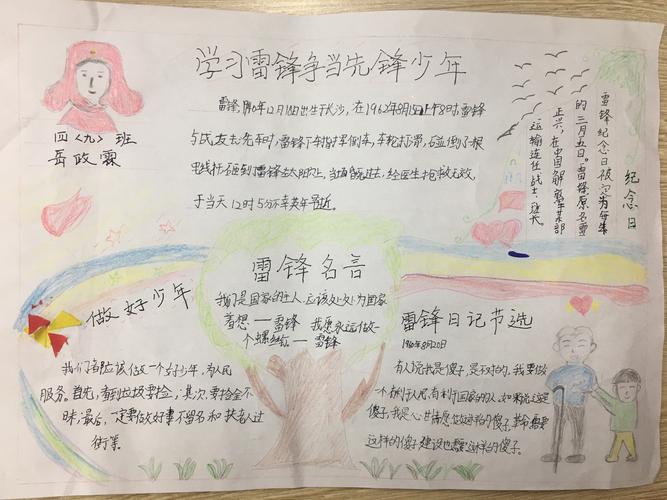 学习雷锋争当先锋少年
四〈九〉班
岳政霖
雷锋,1940年12月18日出生于长沙,在1962年8月15日上午8时,雷锋
与战友去洗车时,雷锋下车指挥倒车,车轮打滑,碰倒了根
电线杆砸到雷锋头上,当场昏过去,经医生抢救无效,
于当天12时5分不幸英年
纪念日
雷锋纪念日被定为每年
的三月五日。雷锋原名雷
正兴,在中国解放军某部
运输连任战士、班长
做好少年
我们都应该做一个好少年,为人民
服务。首先,看到垃圾要捡;其次,要拾金不
昧;最后,一定要做好事不留名和扶老人过
街等。
雷锋名言
我们是国家的主人,应该处处为国家
着想——雷锋 我愿永远做一
个螺丝钉——雷锋
雷锋日记节选
1960年8月20日
有人说我是傻子,是不对的,我要做
一个有利于人民,有利于国家的人,如果说这是
傻子,我是心甘情愿做这样的傻子,革命需要
这样的傻子,建设也需要这样的傻子。